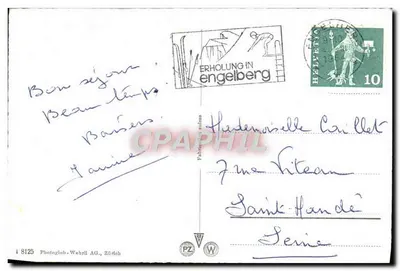 ERHOLUNG IN
engelberg
HELVETIA
10
Bon séjour!
Beau temps!
Baisers.
Janine
CARTOPHIL
Mademoiselle Caillet
7 rue Viteau
Saint-Mandé
Seine
8125 Photoglob-Wehrli AG., Zürich
PZ W